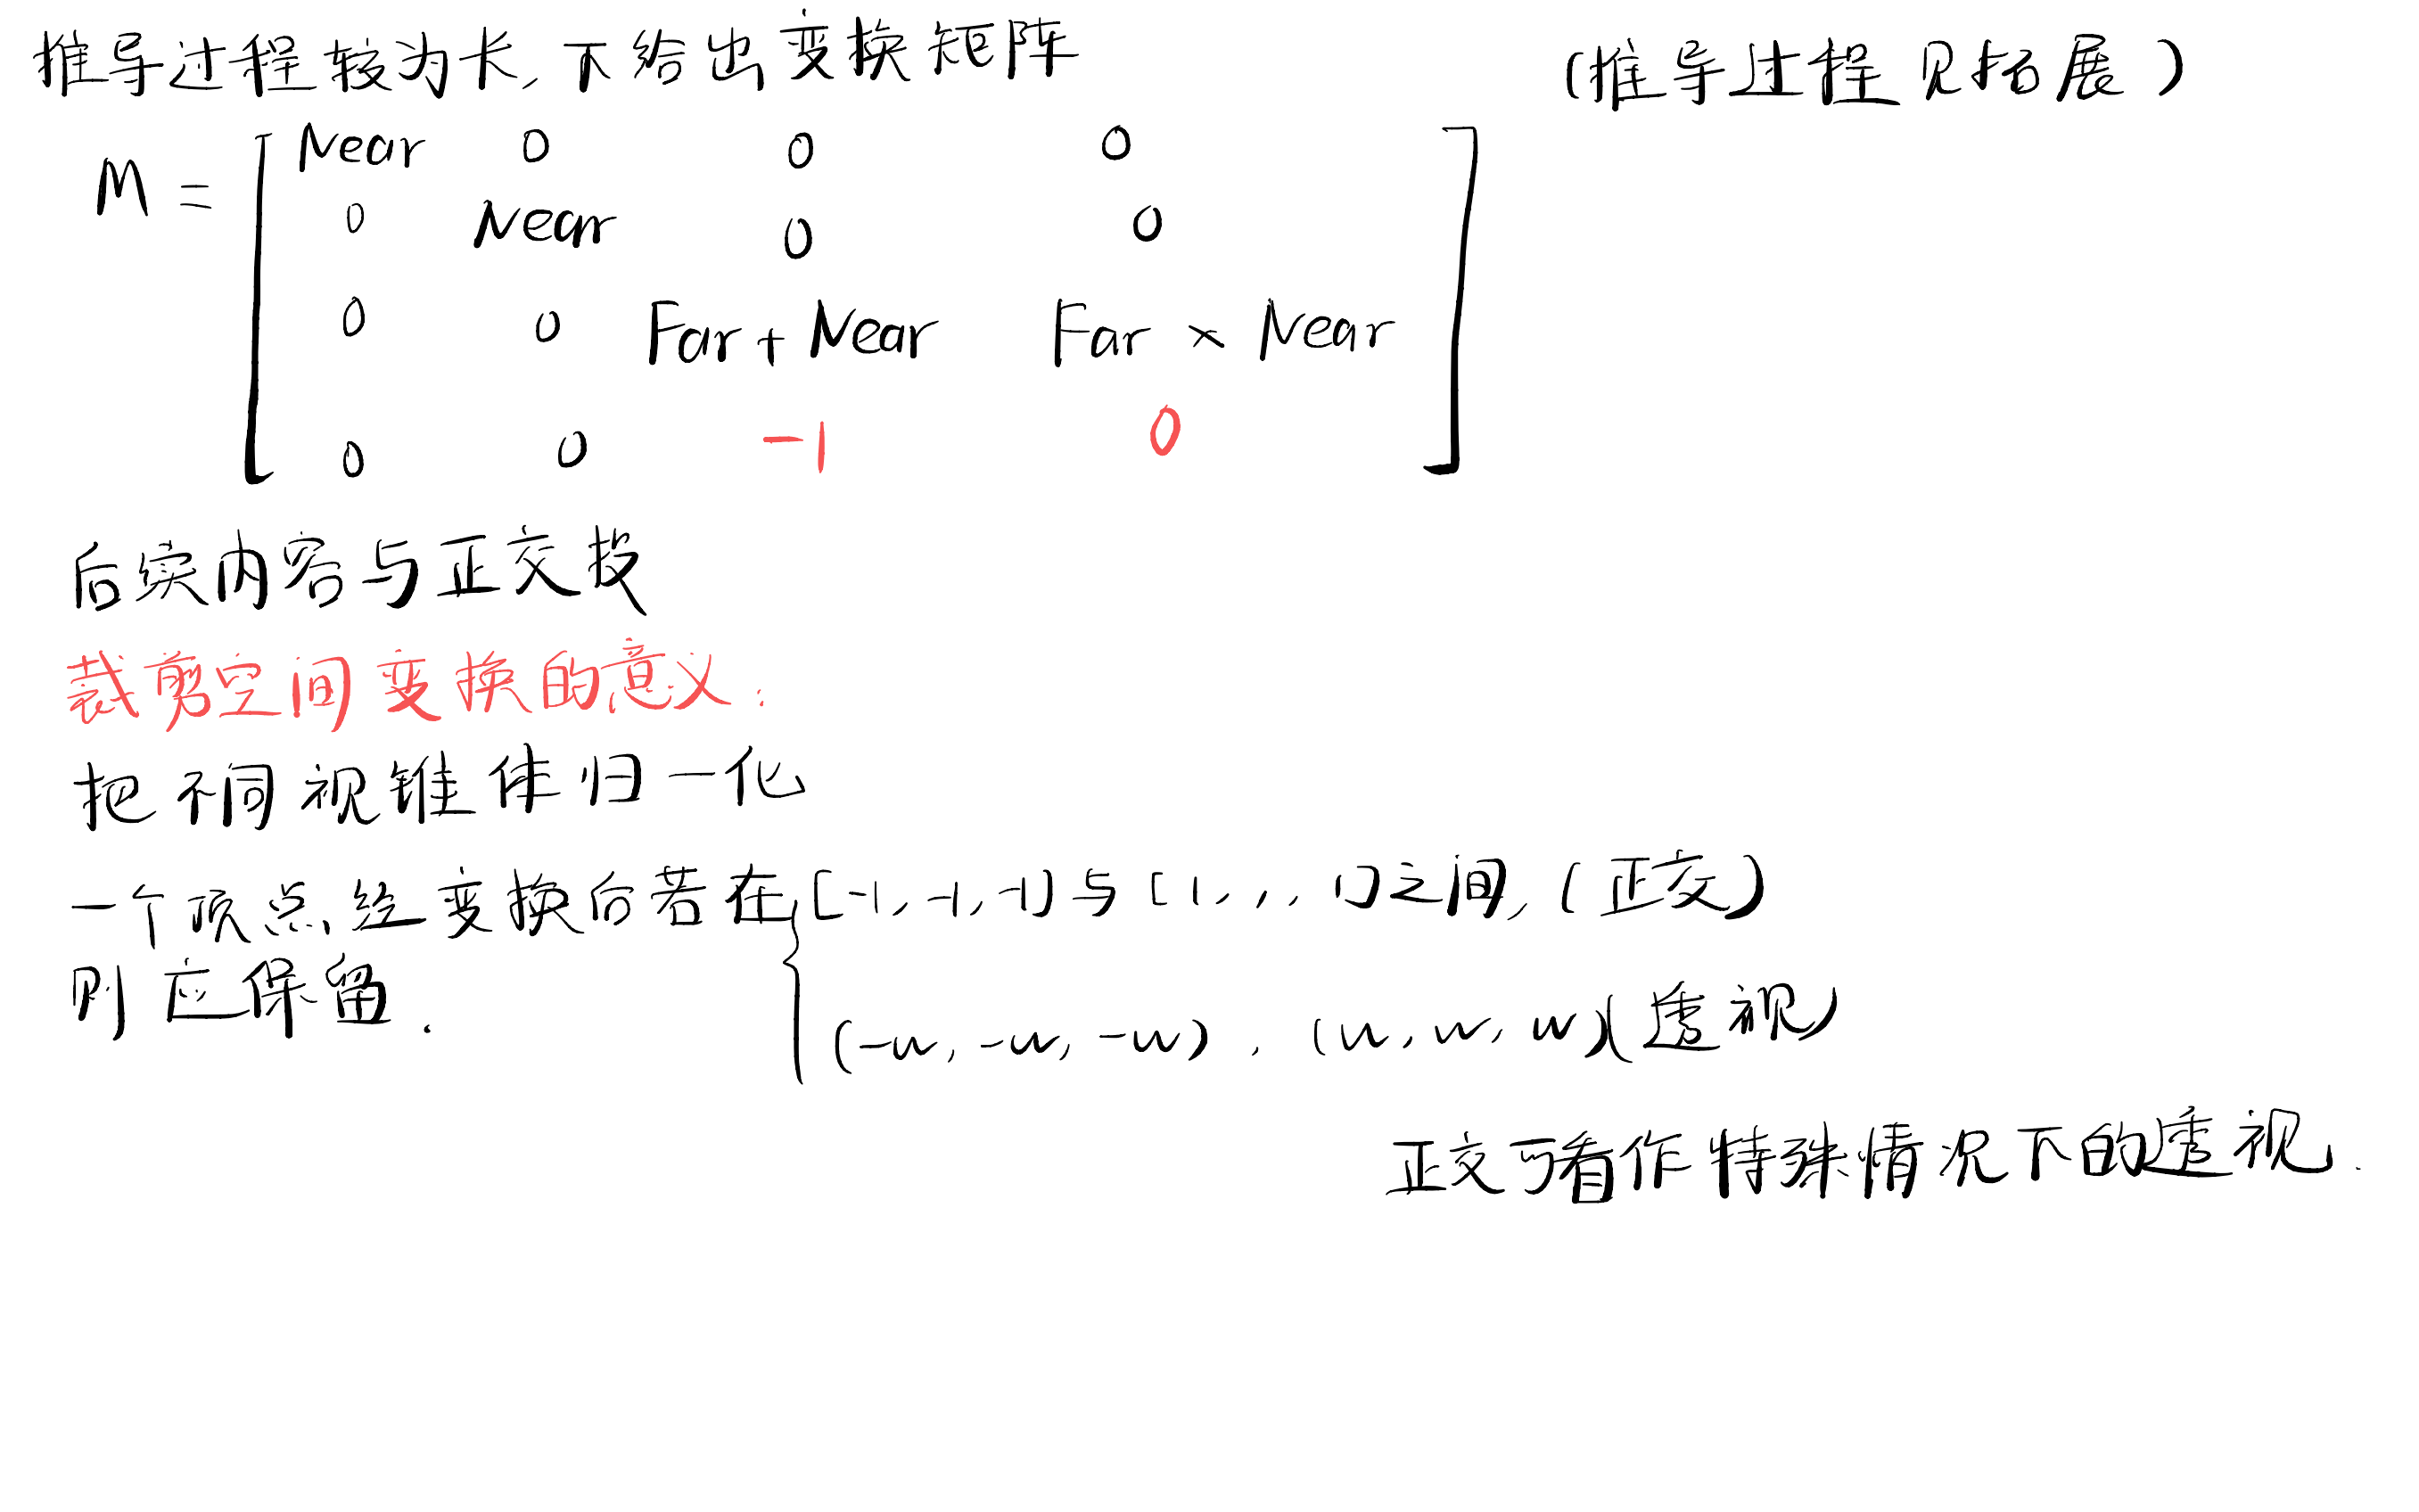 推导过程较为长,下给出变换矩阵 (推导过程见拓展)
M = [ Near 0 0 0
0 Near 0 0
0 0 Far + Near Far × Near
0 0 -1 0 ]
后续内容与正交投
裁剪空间变换的意义:
把不同视锥体归一化
一个顶点经变换后若在 { [-1, -1, -1] 与 [1, , , 1] 之间, (正交)
则应保留.
(-w, -w, -w) , (w, w, w) (透视)
正交可看作特殊情况下的透视.